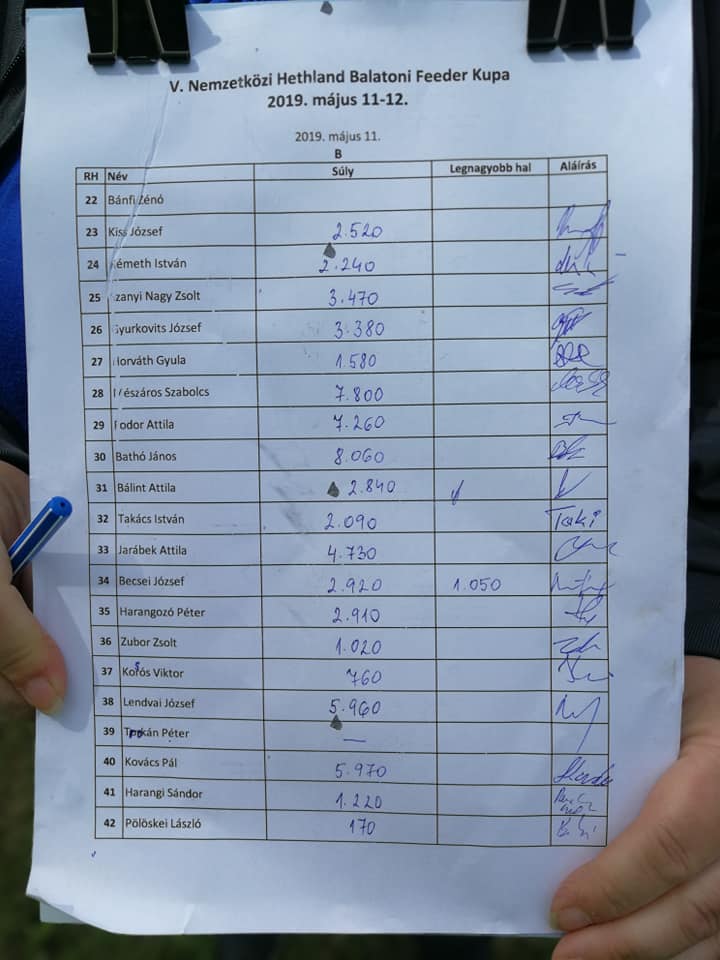 V. Nemzetközi Hethland Balatoni Feeder Kupa
2019. május 11-12.
2019. május 11.
B
RH Név Súly Legnagyobb hal Aláírás
22 Bánfi Zénó
23 Kiss József 2.520
24 Németh István 2.240
25 zanyi Nagy Zsolt 3.470
26 Gyurkovits József 3.380
27 Horváth Gyula 1.580
28 Mészáros Szabolcs 7.800
29 Fodor Attila 7.260
30 Bathó János 8.060
31 Bálint Attila 2.840
32 Takács István 2.090 Taki
33 Jarábek Attila 4.730
34 Becsei József 2.920 1.050
35 Harangozó Péter 2.910
36 Zubor Zsolt 1.020
37 Kořós Viktor 760
38 Lendvai József 5.960
39 Péter —
40 Kovács Pál 5.970
41 Harangi Sándor 1.220
42 Pölöskei László 170